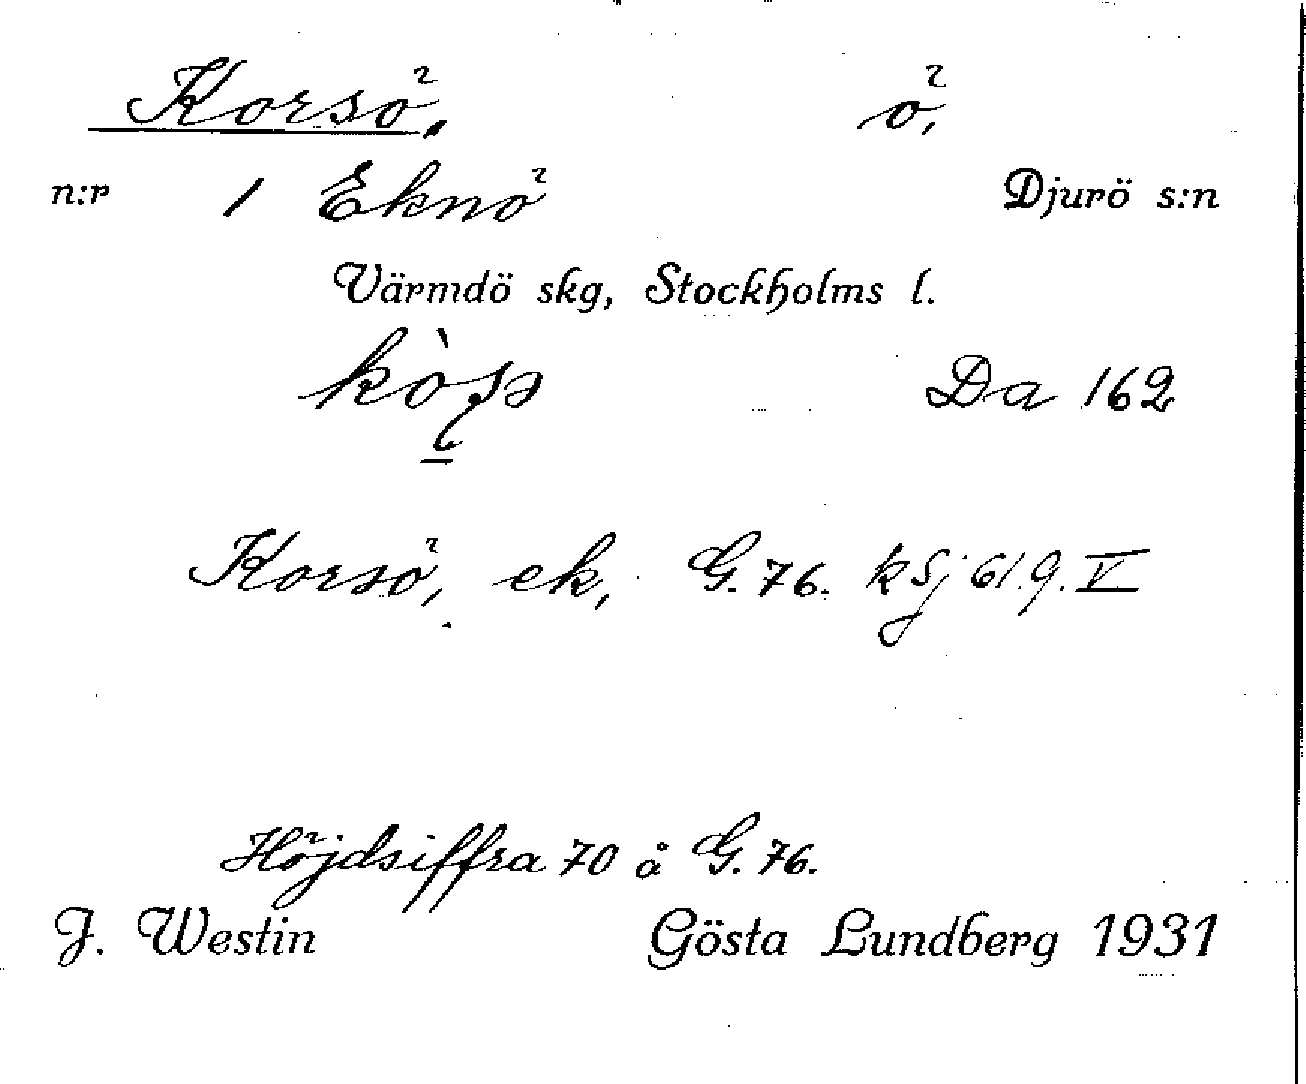 Korsö. ö,
n:r 1 Eknö Djurö s:n
Värmdö skg, Stockholms l.
Da 162
Korsö, ek, G. 76. kSj 619. V
Höjdsiffra 70 å G. 76.
J. Westin Gösta Lundberg 1931